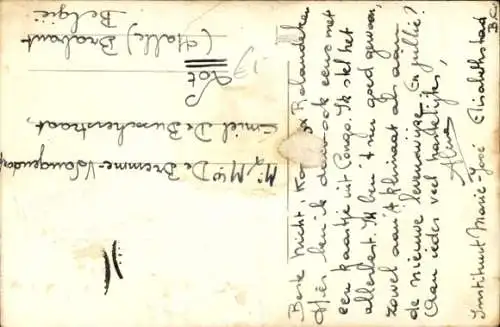 Beste Nicht, Kozijn & Rolandeken
Hier ben ik dan ook eens met
een kaartje uit Congo. Ik stel het
allerbest. Ik ben 't nu goed gewoon,
zowel aan 't klimaat als aan
de nieuwe levenswijze. En jullie?
Aan ieder veel hartelijks,
Instituut Marie-José Elisabethstad
Mr & Mw De Dremme-
Emiel De Busscherstraat,
Lot
(Halle) Brabant
België